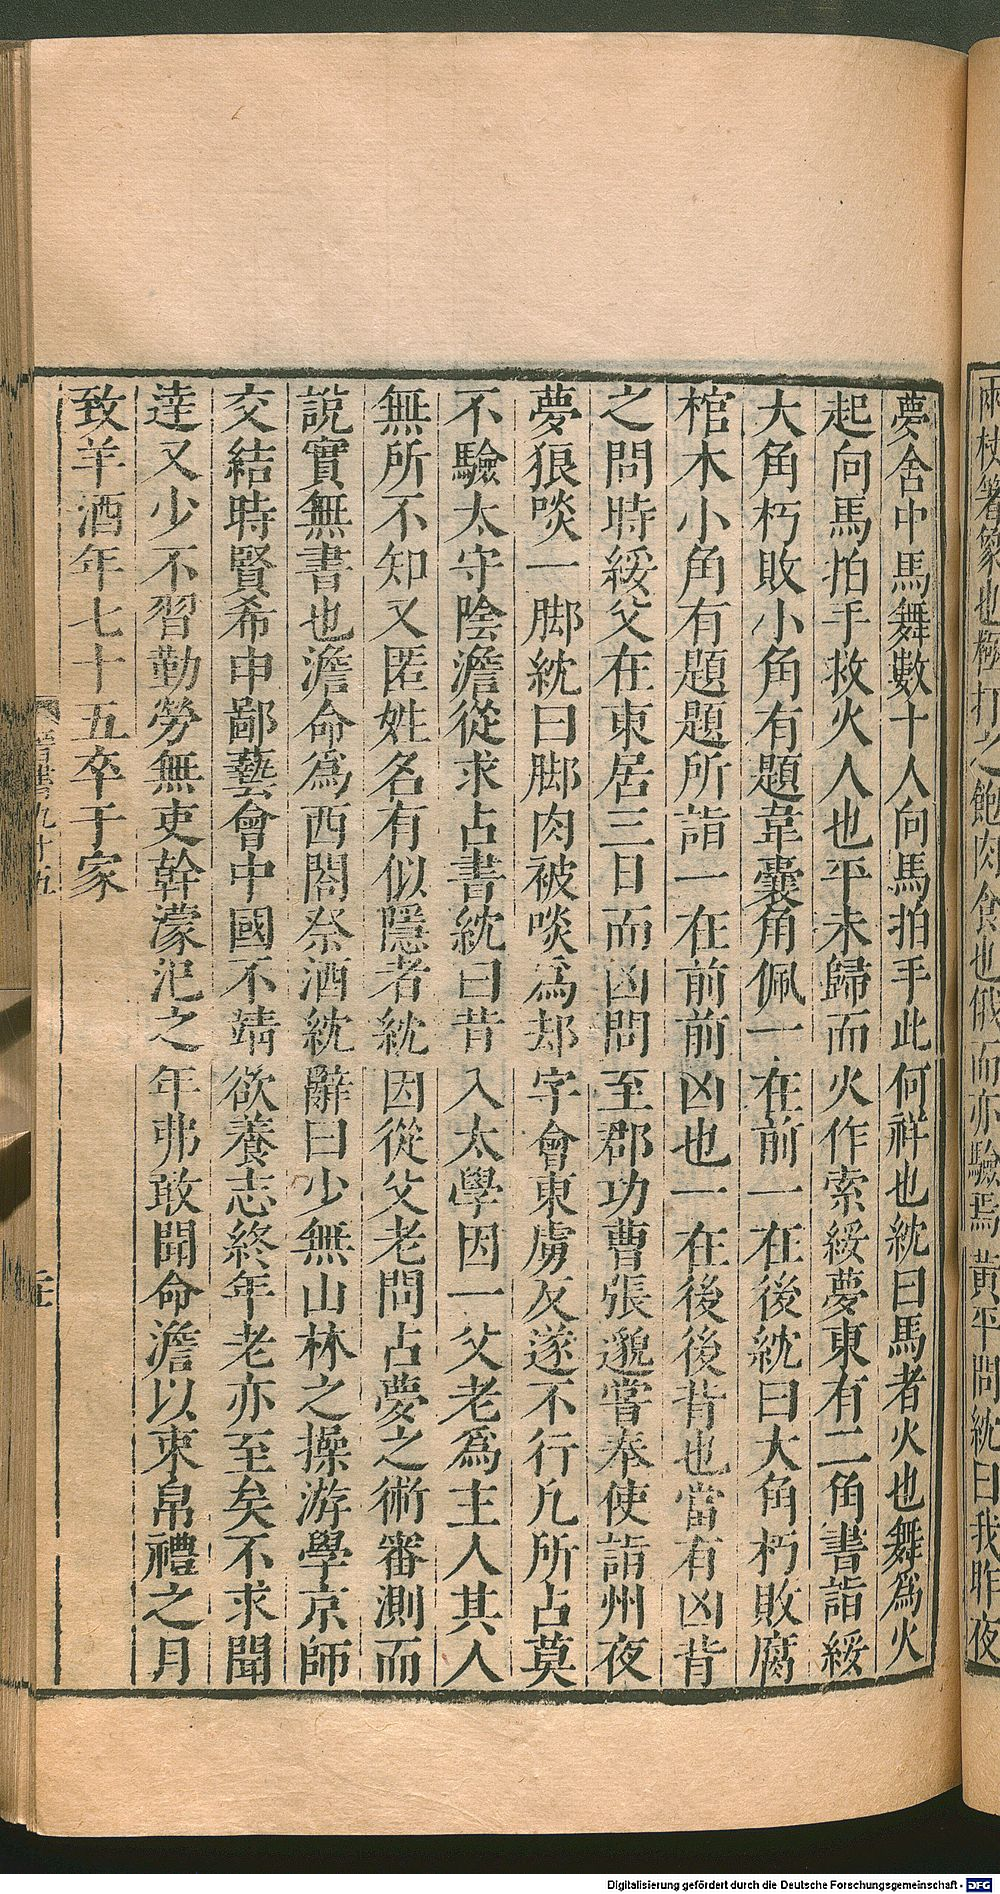 兩杖箸象也極打之飽肉食也俄而亦驗焉黃平問紞曰我昨夜
夢舍中馬舞數十人向馬拍手此何祥也紞曰馬者火也舞爲火
起向馬拍手救火人也平未歸而火作索綏夢東有二角書詣綏
大角朽敗小角有題韋囊角佩一在前一在後紞曰大角朽敗腐
棺木小角有題題所詣一在前前凶也一在後後背也當有凶背
之問時綏父在東居三日而凶問至郡功曹張邈嘗奉使詣州夜
夢狼啖一脚紞曰脚肉被啖爲却字會東虜反遂不行凡所占莫
不驗太守陰澹從求占書紞曰昔入太學因一父老爲主人其人
無所不知又匿姓名有似隱者紞因從父老問占夢之術審測而
說實無書也澹命爲西閤祭酒紞辭曰少無山林之操游學京師
交結時賢希申鄙藝會中國不靖欲養志終年老亦至矣不求聞
達又少不習勤勞無吏幹濛汜之年弗敢聞命澹以束帛禮之月
致羊酒年七十五卒于家
晉書九十五
Digitalisierung gefördert durch die Deutsche Forschungsgemeinschaft - DFG